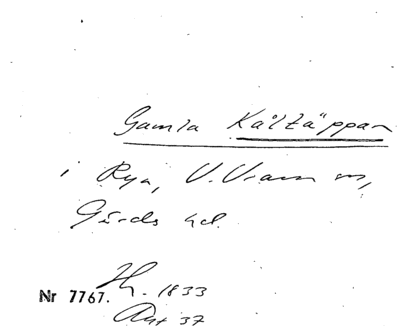 Gamla Kåltäppan
i Rya, V. Vram sn,
Gärds hd.
Nr 7767. Hh. 1833
Akt 37